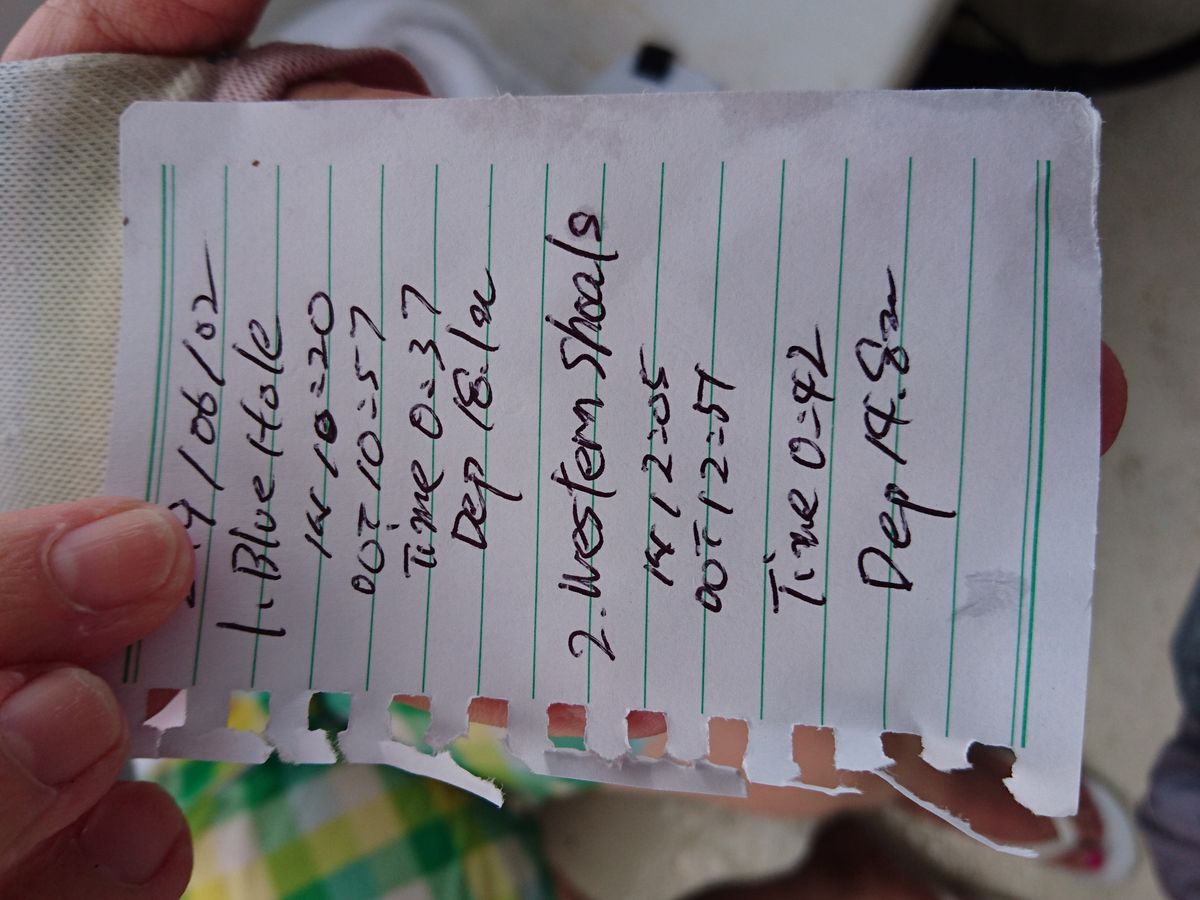 /06/02
1. Blue Hole
in 10=20
OUT 10=57
Time 0=37
Dep 18.1m
2. Western Shoals
in 12=05
OUT 12=51
Time 0=42
Dep 14.8m